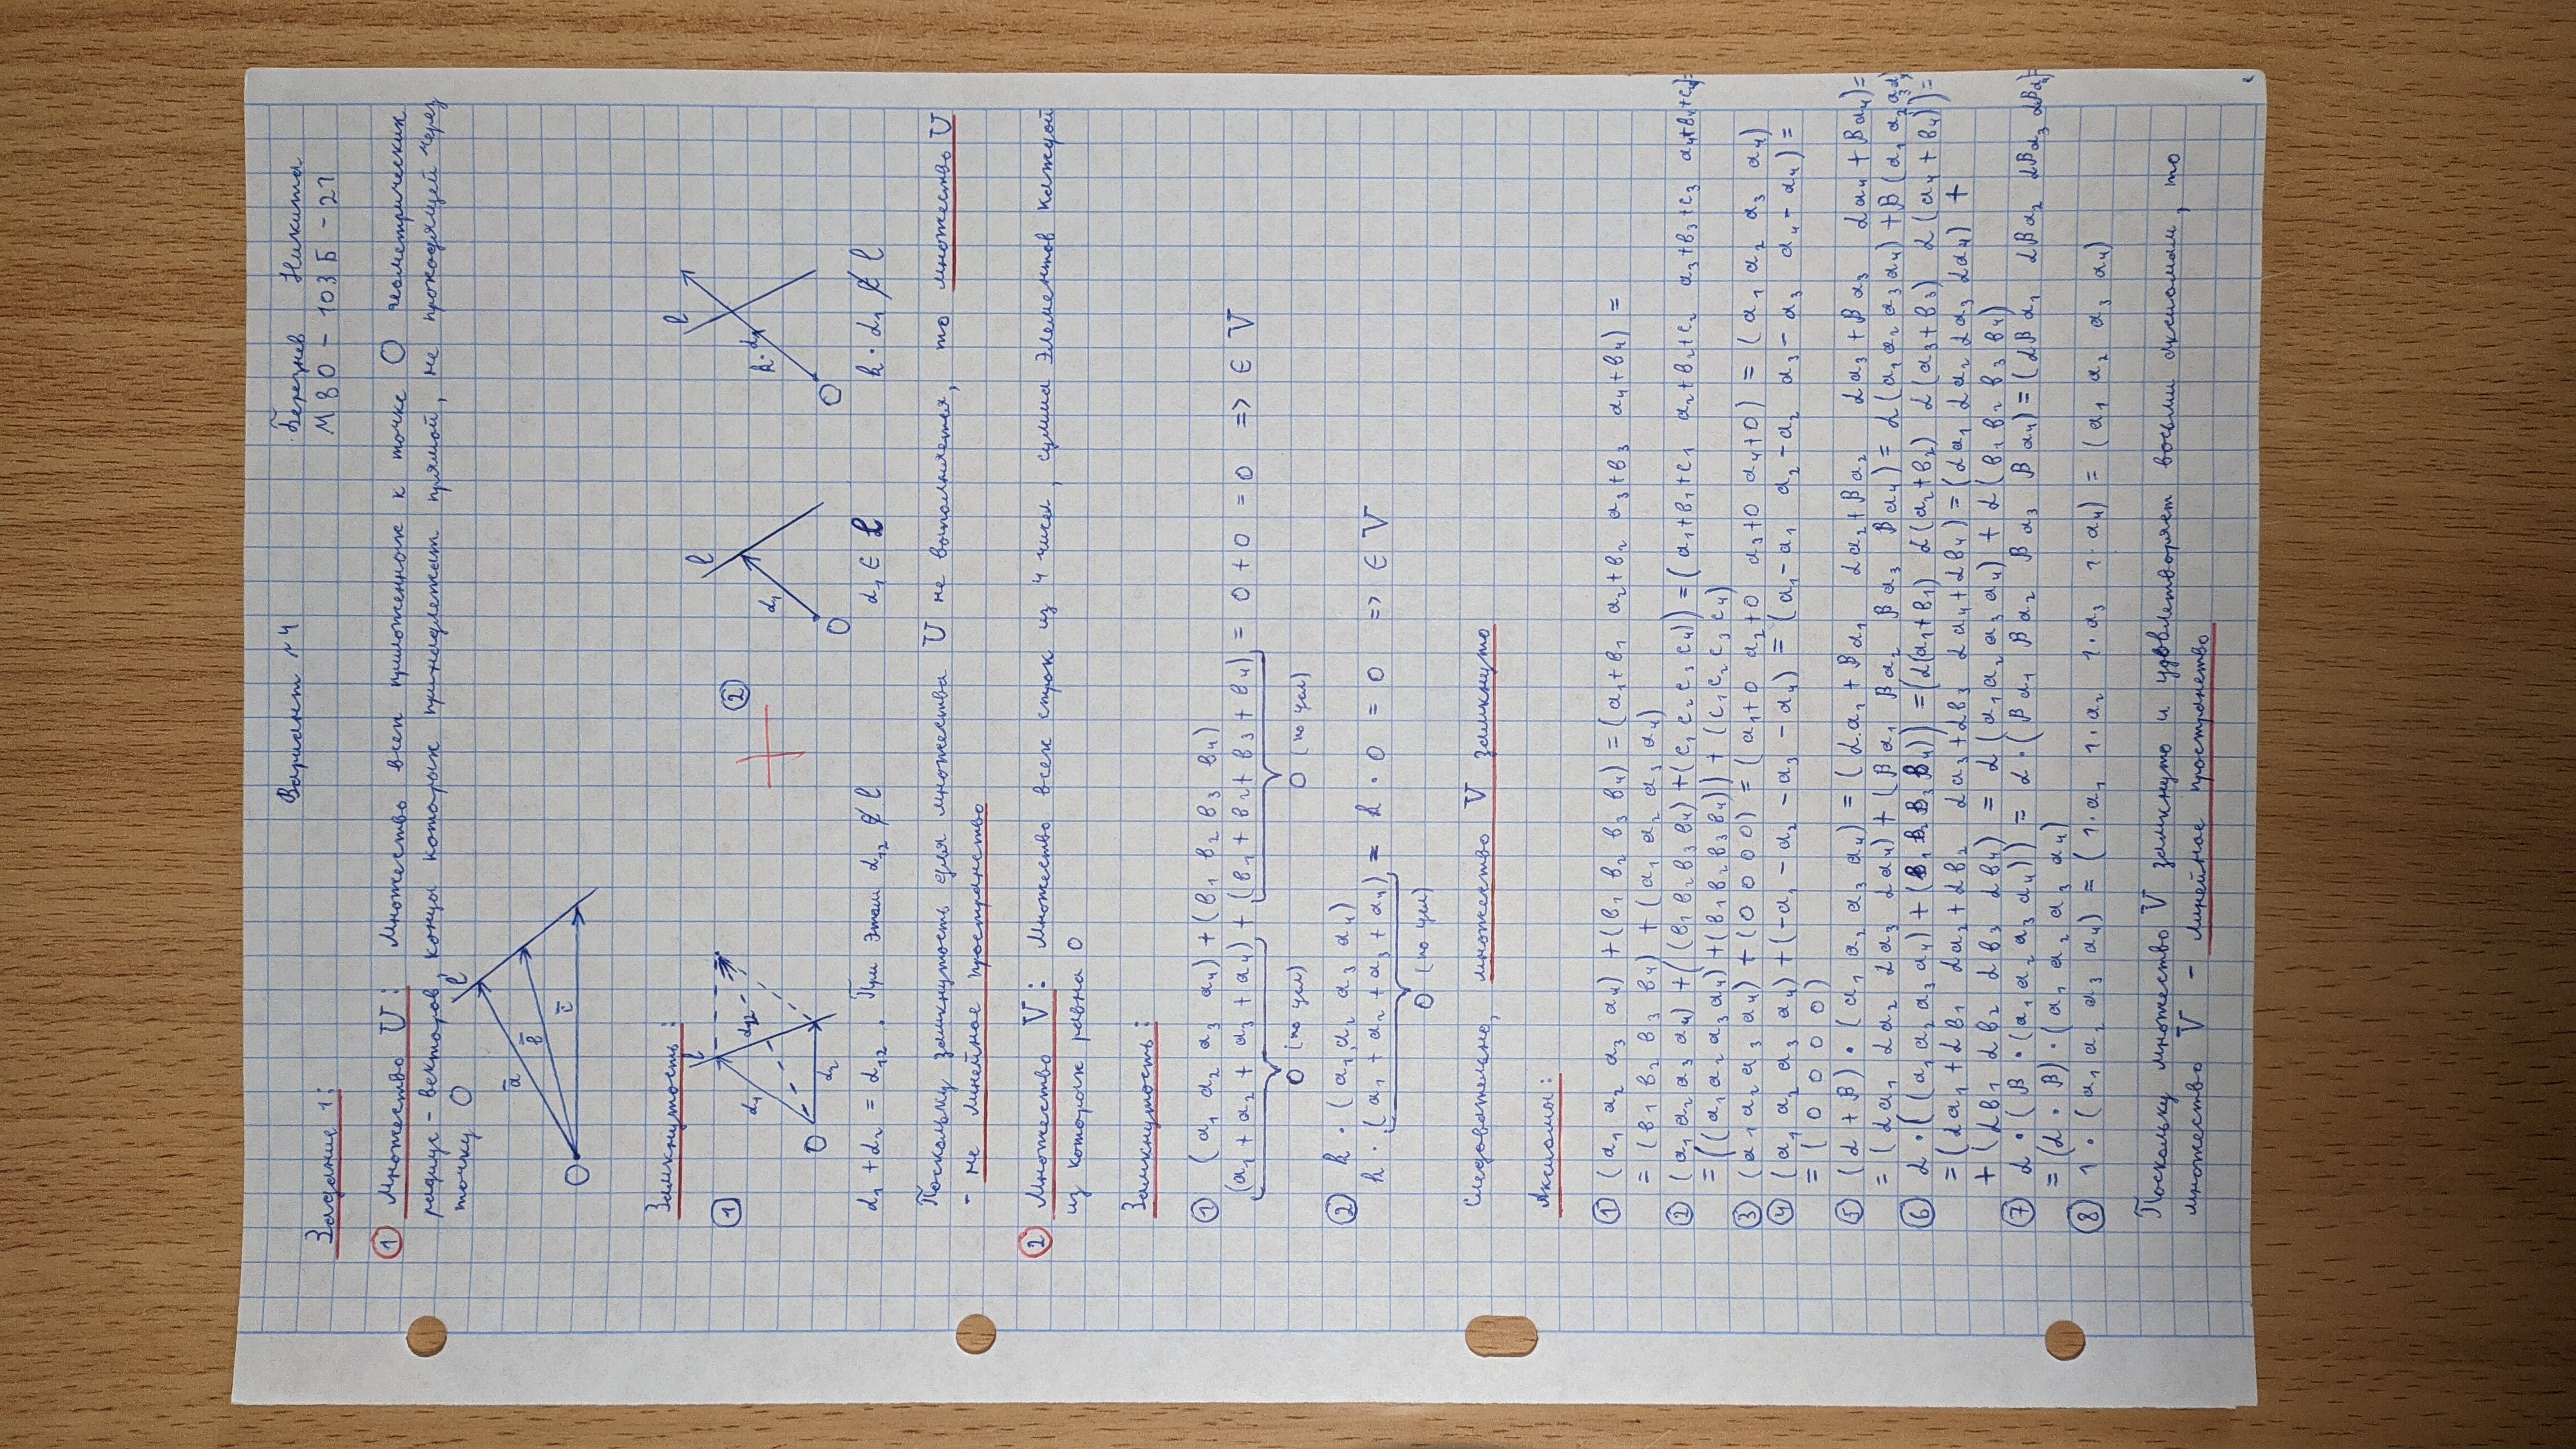 Вариант №4
Березнев Никита
М80 - 103Б - 21
Задание 1:
① Множество U: Множество всех приложенных к точке О геометрических
радиус - векторов, концы которых принадлежат прямой, не проходящей через
точку О
l
ā
b̄
c̄
О
Замкнутость:
① l α₁ α₁₂ О α₂
② l α₁ О
l k·α₁ О
α₁ + α₂ = α₁₂. При этом α₁₂ ∉ l
α₁ ∈ l
k · α₁ ∉ l
Поскольку замкнутость для множества U не выполняется, то множество U
- не линейное пространство
② Множество V: Множество всех строк из 4 чисел, сумма элементов каждой
из которых равна 0
Замкнутость:
① (a₁ a₂ a₃ a₄) + (в₁ в₂ в₃ в₄)
(a₁ + a₂ + a₃ + a₄) + (в₁ + в₂ + в₃ + в₄) = 0 + 0 = 0 => ∈ V
0 (по усл) 0 (по усл)
② k · (a₁ a₂ a₃ a₄)
k · (a₁ + a₂ + a₃ + a₄) = k · 0 = 0 => ∈ V
0 (по усл)
Следовательно, множество V замкнуто
Аксиомы:
① (a₁ a₂ a₃ a₄) + (в₁ в₂ в₃ в₄) = (a₁+в₁ a₂+в₂ a₃+в₃ a₄+в₄) =
= (в₁ в₂ в₃ в₄) + (a₁ a₂ a₃ a₄)
② (a₁ a₂ a₃ a₄) + ((в₁ в₂ в₃ в₄) + (c₁ c₂ c₃ c₄)) = (a₁+в₁+c₁ a₂+в₂+c₂ a₃+в₃+c₃ a₄+в₄+c₄) =
= ((a₁ a₂ a₃ a₄) + (в₁ в₂ в₃ в₄)) + (c₁ c₂ c₃ c₄)
③ (a₁ a₂ a₃ a₄) + (0 0 0 0) = (a₁+0 a₂+0 a₃+0 a₄+0) = (a₁ a₂ a₃ a₄)
④ (a₁ a₂ a₃ a₄) + (-a₁ -a₂ -a₃ -a₄) = (a₁-a₁ a₂-a₂ a₃-a₃ a₄-a₄) =
= (0 0 0 0)
⑤ (α + β) · (a₁ a₂ a₃ a₄) = (αa₁ + βa₁ αa₂ + βa₂ αa₃ + βa₃ αa₄ + βa₄) =
= (αa₁ αa₂ αa₃ αa₄) + (βa₁ βa₂ βa₃ βa₄) = α(a₁ a₂ a₃ a₄) + β(a₁ a₂ a₃ a₄)
⑥ α · ((a₁ a₂ a₃ a₄) + (в₁ в₂ в₃ в₄)) = (α(a₁+в₁) α(a₂+в₂) α(a₃+в₃) α(a₄+в₄)) =
= (αa₁+αв₁ αa₂+αв₂ αa₃+αв₃ αa₄+αв₄) = (αa₁ αa₂ αa₃ αa₄) +
+ (αв₁ αв₂ αв₃ αв₄) = α(a₁ a₂ a₃ a₄) + α(в₁ в₂ в₃ в₄)
⑦ α · (β · (a₁ a₂ a₃ a₄)) = α · (βa₁ βa₂ βa₃ βa₄) = (αβa₁ αβa₂ αβa₃ αβa₄) =
= (α · β) · (a₁ a₂ a₃ a₄)
⑧ 1 · (a₁ a₂ a₃ a₄) = (1·a₁ 1·a₂ 1·a₃ 1·a₄) = (a₁ a₂ a₃ a₄)
Поскольку множество V замкнуто и удовлетворяет восьми аксиомам, то
множество V - линейное пространство